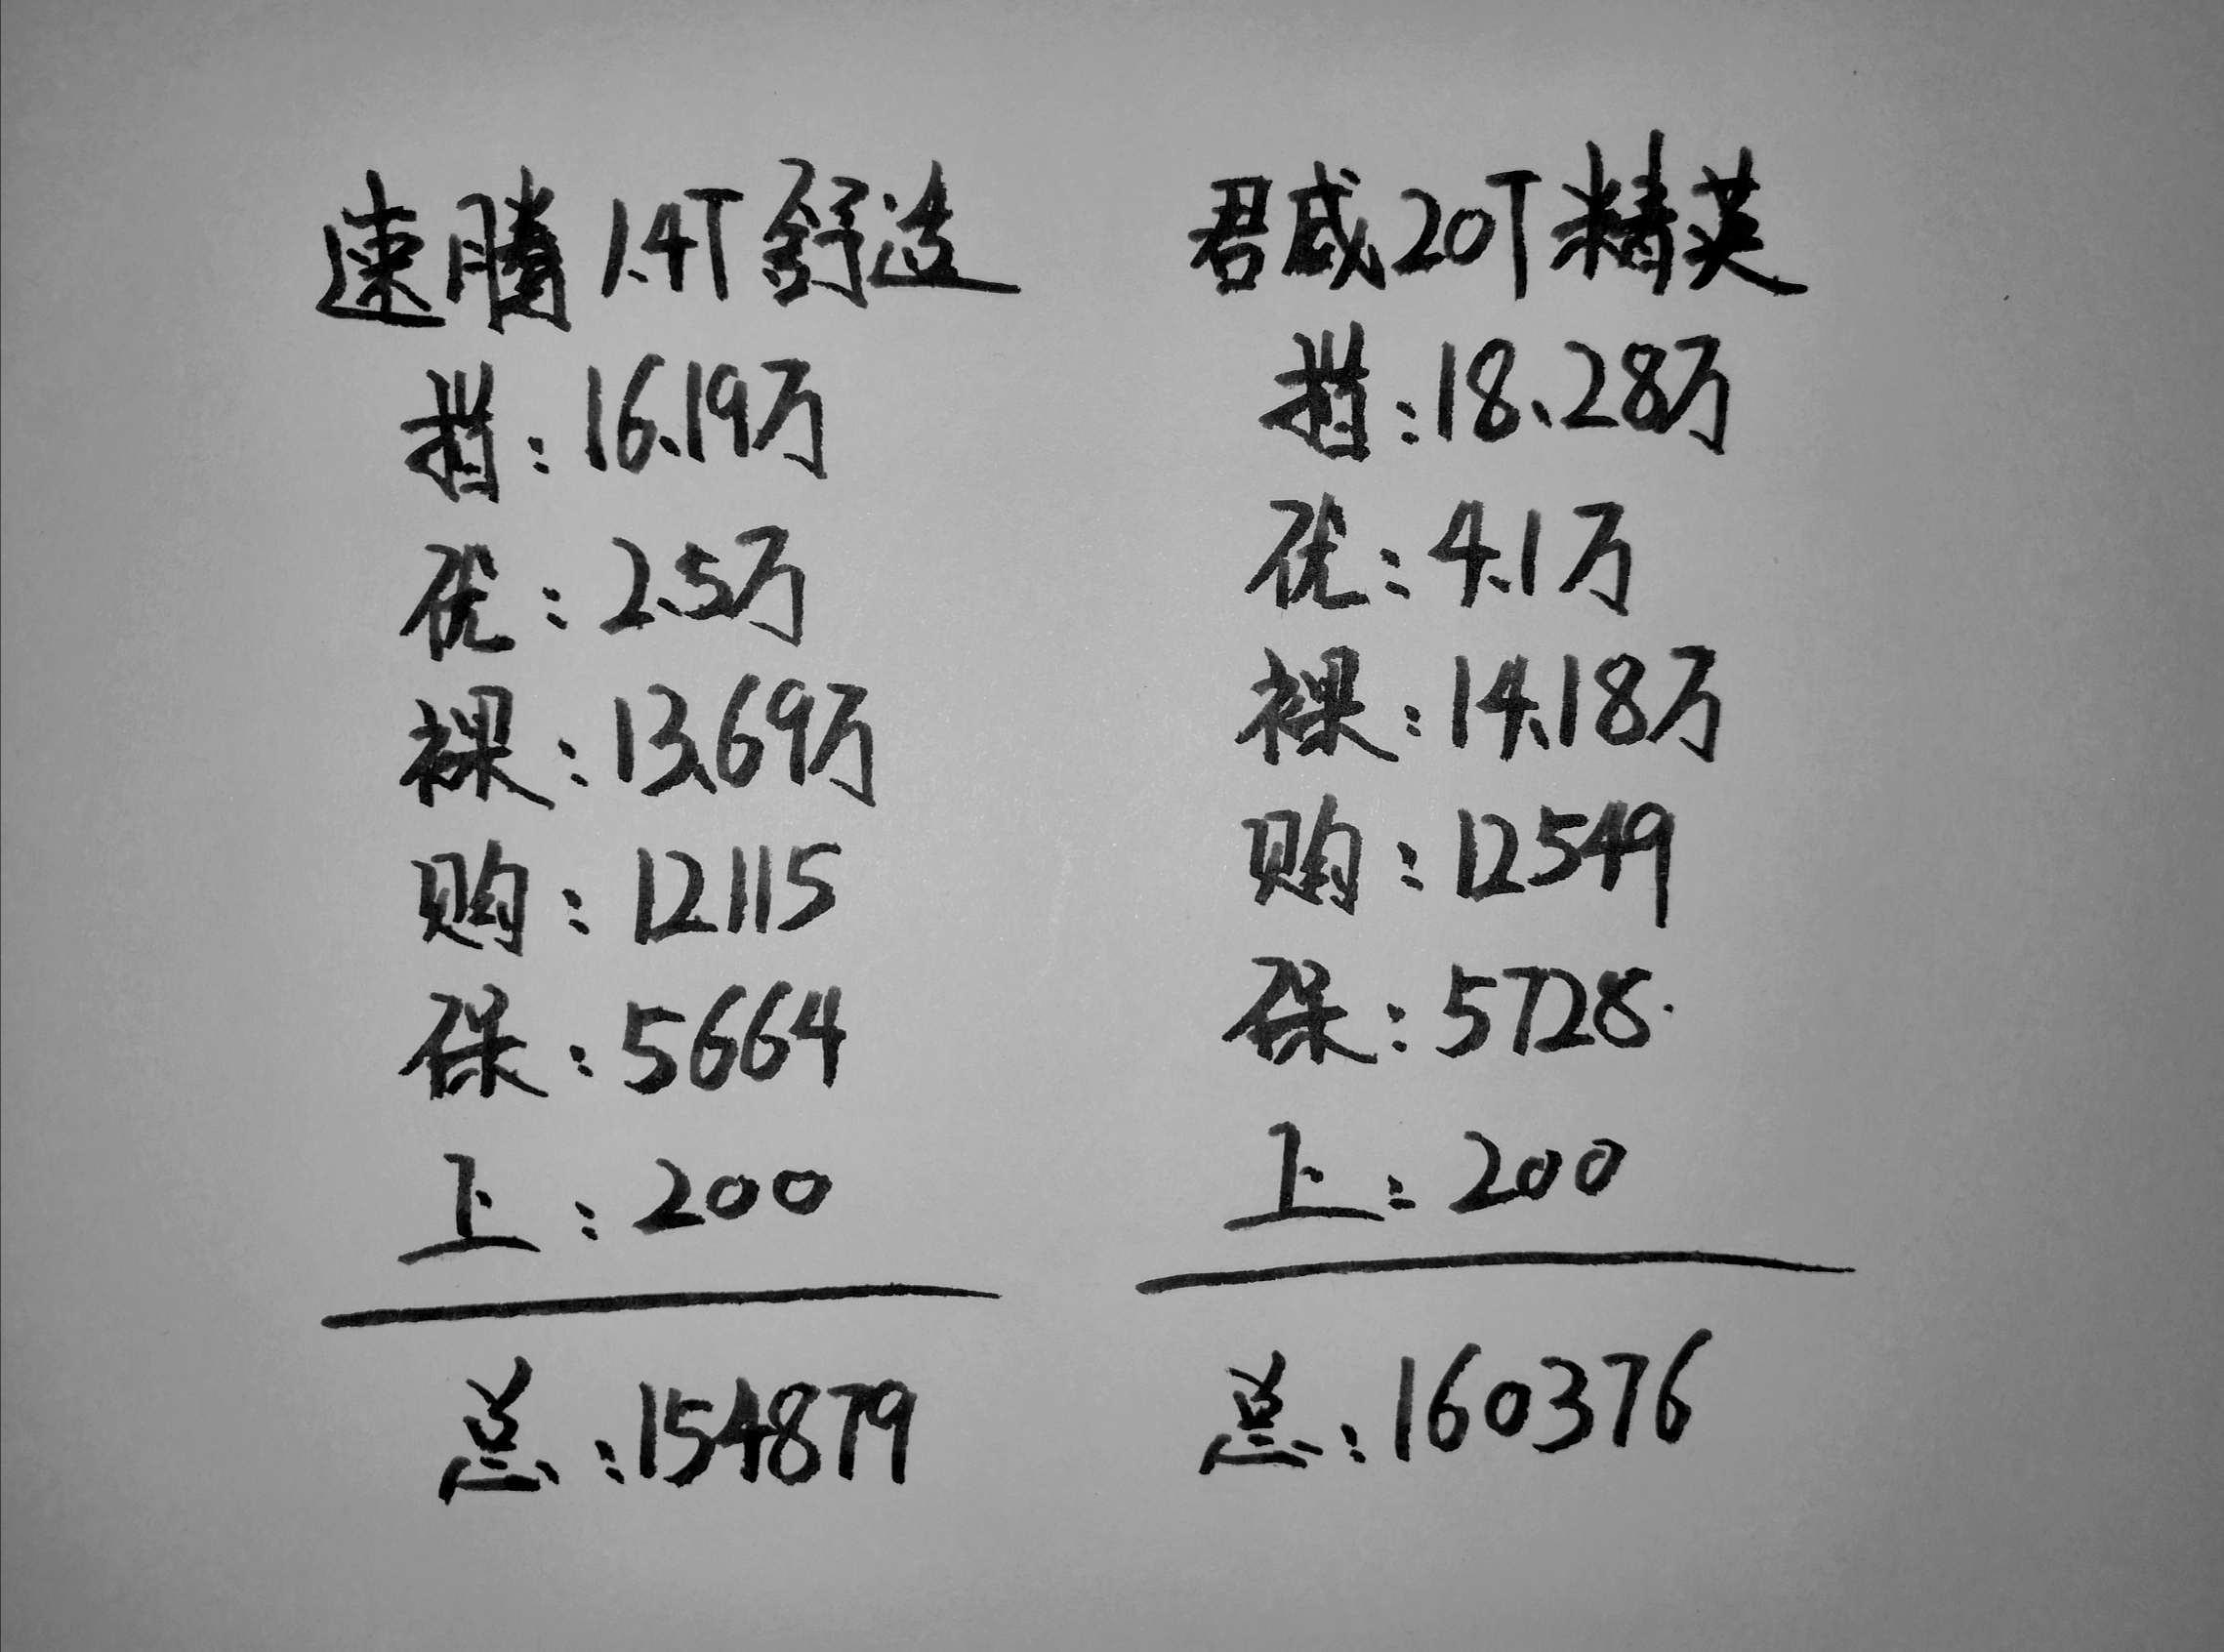 速腾 1.4T 舒适
指：16.19万
优：2.5万
裸：13.69万
购：12115
保：5664
上：200
总：154879
君威 20T 精英
指：18.28万
优：4.1万
裸：14.18万
购：12549
保：5728
上：200
总：160376